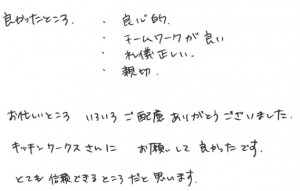 良かったところ.
・ 良心的.
・ チームワークが良い
・ 礼儀正しい.
・ 親切.
お忙しいところ いろいろ ご配慮 ありがとう ございました.
キッチンワークスさんに お願いして 良かったです.
とても 信頼できるところだと 思います.